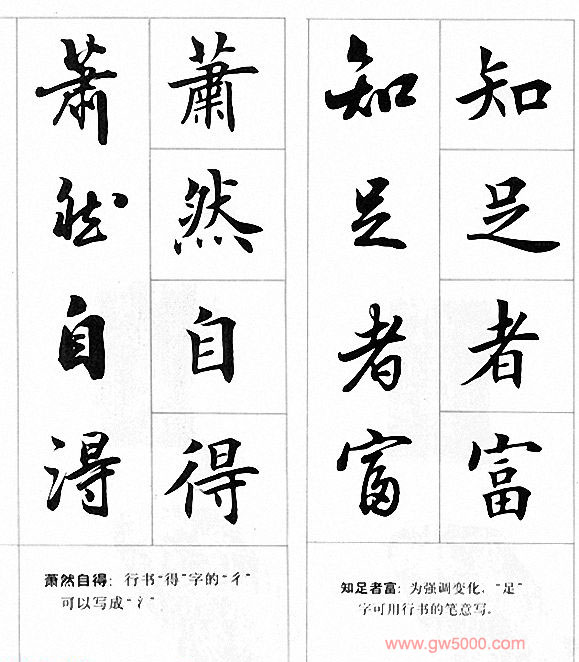 知足者富
知足者富
知足者富：为强调变化，“足”
字可用行书的笔意写。
蕭然自得
蕭然自得
萧然自得：行书“得”字的“彳”
可以写成“氵”
www.gw5000.com